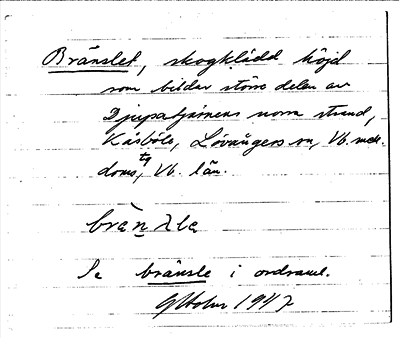 Bränslet, skogklädd höjd
som bildar större delen av
Djupatjärnens norra strand,
Kåsböle, Lövångers sn, Vb. mel.
doms tg, Vb. län.
bränsle
Se bränsle i ordsaml.
1947